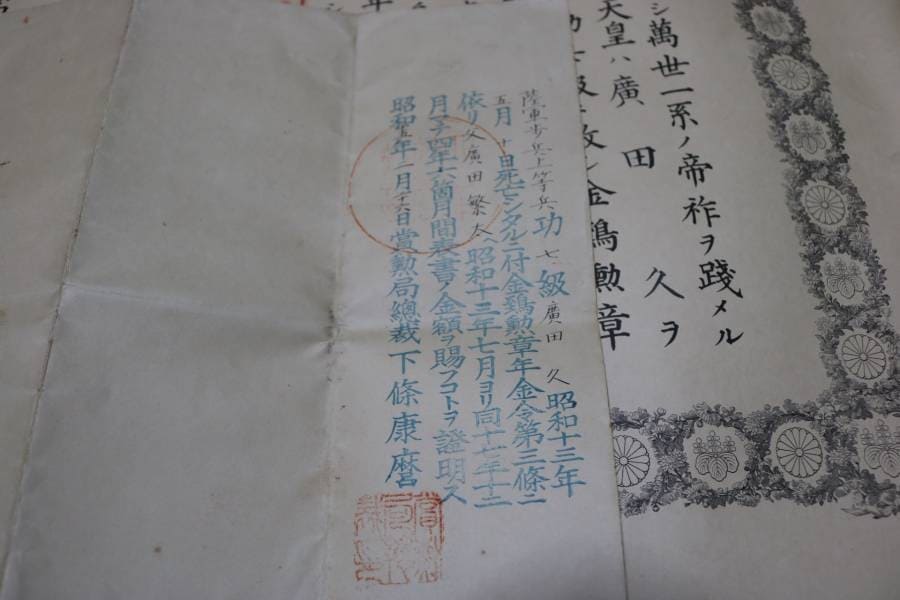 シ萬世一系ノ帝祚ヲ踐メル
天皇ハ廣田久ヲ
功七級ニ敍シ金鵄勲章
陸軍歩兵上等兵功七級廣田久昭和十三年
五月十日死亡シタルニ付金鵄勲章年金令第三條ニ
依リ父廣田繁太ヘ昭和十三年七月ヨリ同十七年十二
月マテ四年六箇月間表書ノ金額ヲ賜フコトヲ證明ス
昭和十五年 月 十六日賞勲局總裁下條康麿